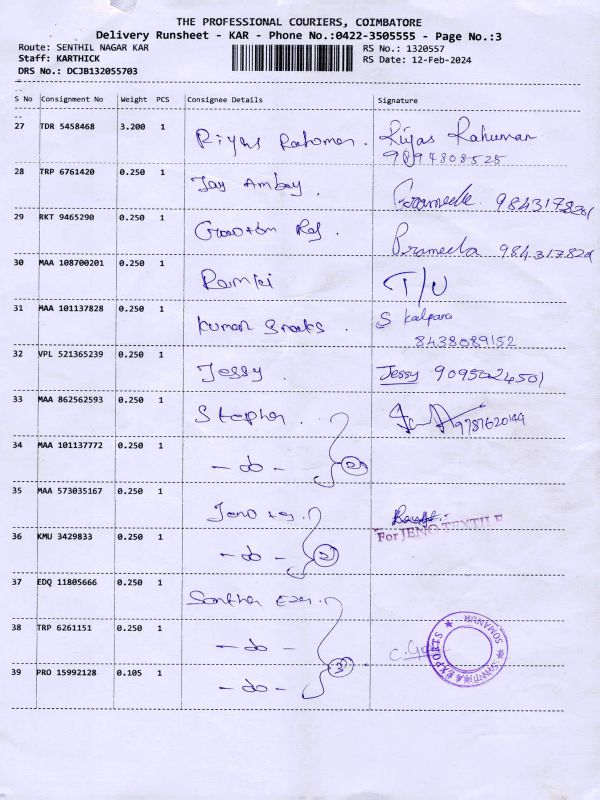 THE PROFESSIONAL COURIERS, COIMBATORE
Delivery Runsheet - KAR - Phone No.:0422-3505555 - Page No.:3
Route: SENTHIL NAGAR KAR RS No.: 1320557
Staff: KARTHICK RS Date: 12-Feb-2024
DRS No.: DCJB132055703
S No Consignment No Weight PCS Consignee Details Signature
27 TDR 5458468 3.200 1 Riyas Rahuman. Riyas Rahuman
9894808525
28 TRP 6761420 0.250 1 Jay Ambay. Prameela. 9843178201
29 RKT 9465290 0.250 1 Prameela 9843178201
30 MAA 108700201 0.250 1 Ramki T/U
31 MAA 101137828 0.250 1 Kumari Snacks. S Kalpana
8438089152
32 VPL 521365239 0.250 1 Jessy. Jessy 9095024501
33 MAA 862562593 0.250 1 Stephen. 9787620149
34 MAA 101137772 0.250 1 - do - 2
35 MAA 573035167 0.250 1 Jeno
For JENO TEXTILE
36 KMU 3429833 0.250 1 - do - 2
37 EDQ 11805666 0.250 1
38 TRP 6261151 0.250 1 - do -
SANTHIKA EXPORTS ★ SOMANUR ★
39 PRO 15992128 0.105 1 - do - 3